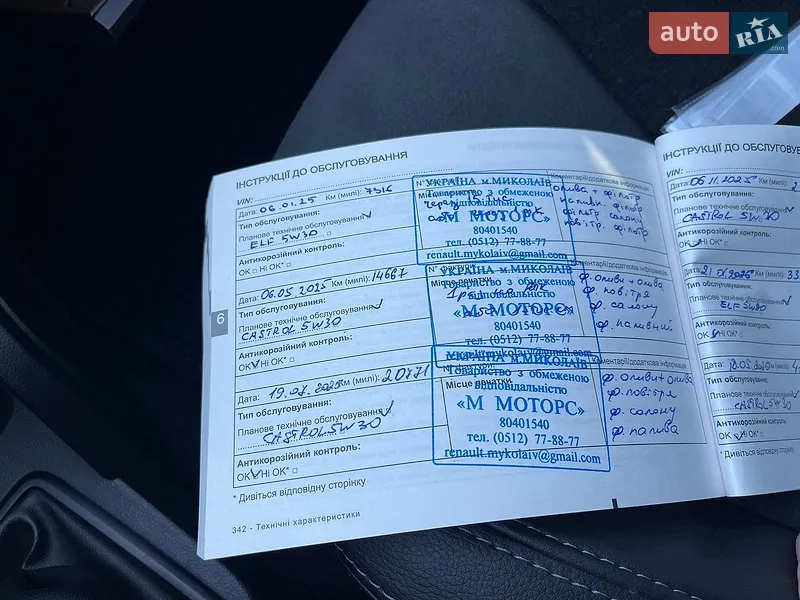 auto RIA.com
ІНСТРУКЦІЇ ДО ОБСЛУГОВУВАННЯ
VIN:
Дата: 06.01.25 Км (милі): 7316
Тип обслуговування:
Планове технічне обслуговування
ELF 5W30
Антикорозійний контроль:
OK Ні OK*
УКРАЇНА м.МИКОЛАЇВ
Товариство з обмеженою
відповідальністю
«М МОТОРС»
80401540
тел. (0512) 77-88-77
renault.mykolaiv@gmail.com
Коментарі/додаткова інформація
олива + фільтр
фільтр салону
повітр. фільтр
Дата: 06.05 2025 Км (милі): 14667
Тип обслуговування:
Планове технічне обслуговування
CASTROL 5W30
Антикорозійний контроль:
OK Ні OK*
УКРАЇНА м.МИКОЛАЇВ
Товариство з обмеженою
відповідальністю
«М МОТОРС»
80401540
тел. (0512) 77-88-77
renault.mykolaiv@gmail.com
Коментарі/додаткова інформація
ф. оливи + олива
ф. повітря
ф. салону
ф. паливний
6
Дата: 19.07.2025 Км (милі): 20771
Тип обслуговування:
Планове технічне обслуговування
CASTROL 5W30
Антикорозійний контроль:
OK Ні OK*
УКРАЇНА м.МИКОЛАЇВ
Місце печатки
Товариство з обмеженою
відповідальністю
«М МОТОРС»
80401540
тел. (0512) 77-88-77
renault.mykolaiv@gmail.com
Коментарі/додаткова інформація
ф. оливи + олива
ф. повітря
ф. салону
ф. палива
* Дивіться відповідну сторінку
342 - Технічні характеристики
ІНСТРУКЦІЇ ДО ОБСЛУГОВУВ
VIN:
Дата: 06.11.2025 Км (милі)
Тип обслуговування:
Планове технічне обслуговування
CASTROL 5W30
Антикорозійний контроль:
OK Ні OK*
Дата: Км (милі) 33
Тип обслуговування:
Планове технічне обслуговування
ELF 5W30
Антикорозійний контроль:
OK Ні OK*
Дата: Км (милі):
Тип обслуговування:
Планове технічне обслуговування
CASTROL 5W30
Антикорозійний контроль:
OK Ні OK*
* Дивіться відповідну сторінку